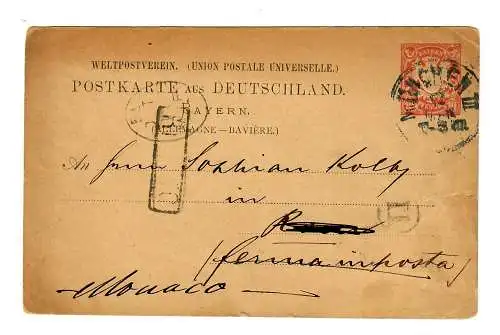 WELTPOSTVEREIN. (UNION POSTALE UNIVERSELLE.)
POSTKARTE AUS DEUTSCHLAND.
BAYERN.
(ALLEMAGNE – BAVIÈRE.)
BAYERN
MÜNCHEN III
An Herrn Sophian Kolb
in
(ferma in posta)
Monaco
II